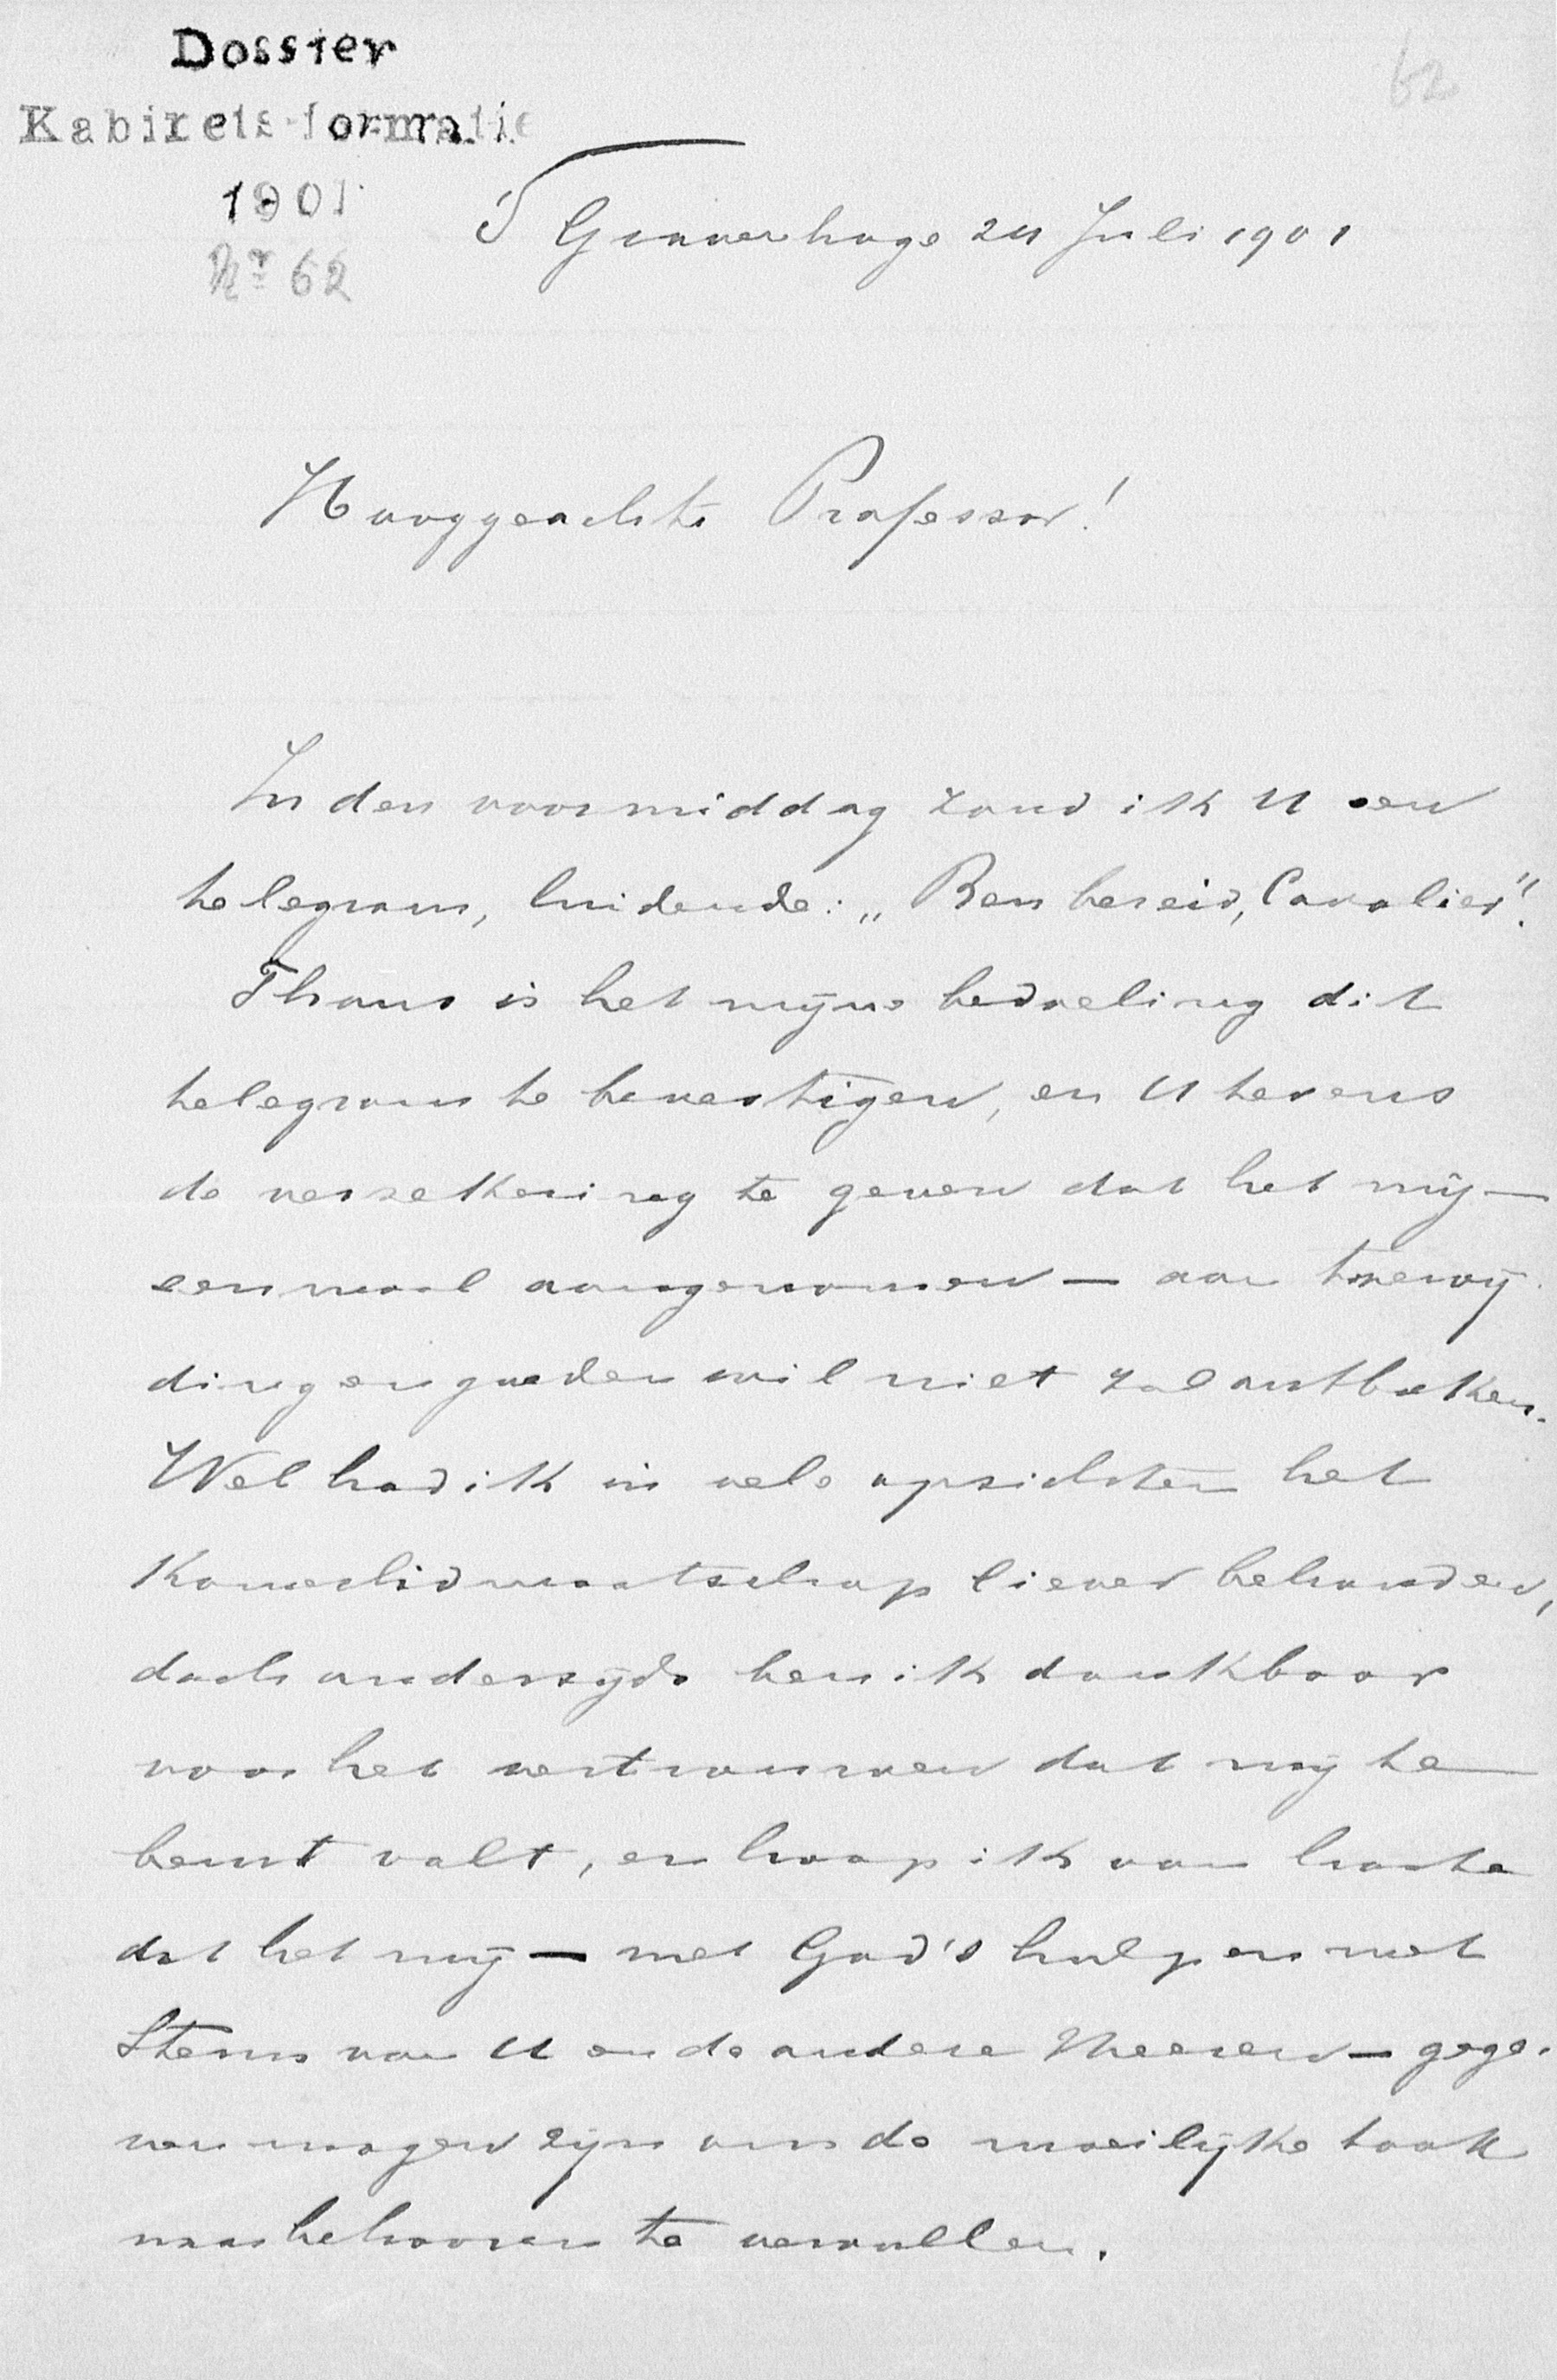 Dossier
Kabinets-formatie
1901
Nr 62
62
'S Gravenhage 24 Juli 1901
Hooggeachte Professor!
In den voormiddag zond ik U een
telegram, luidende: „Ben bereid, Cavalier".
Thans is het mijne bedoeling dit
telegram te bevestigen, en U tevens
de verzekering te geven dat het mij —
eenmaal aangenomen — aan toewij-
ding en goeden wil niet zal ontbreken.
Wel had ik in vele opzichten het
Kamerlidmaatschap liever behouden,
doch anderzijds ben ik dankbaar
voor het vertrouwen dat mij te
beurt valt, en hoop ik van harte
dat het mij — met God's hulp en met
Steun van U en de andere Heeren — gege-
ven mogen zijn om de moeilijke taak
naar behooren te vervullen.